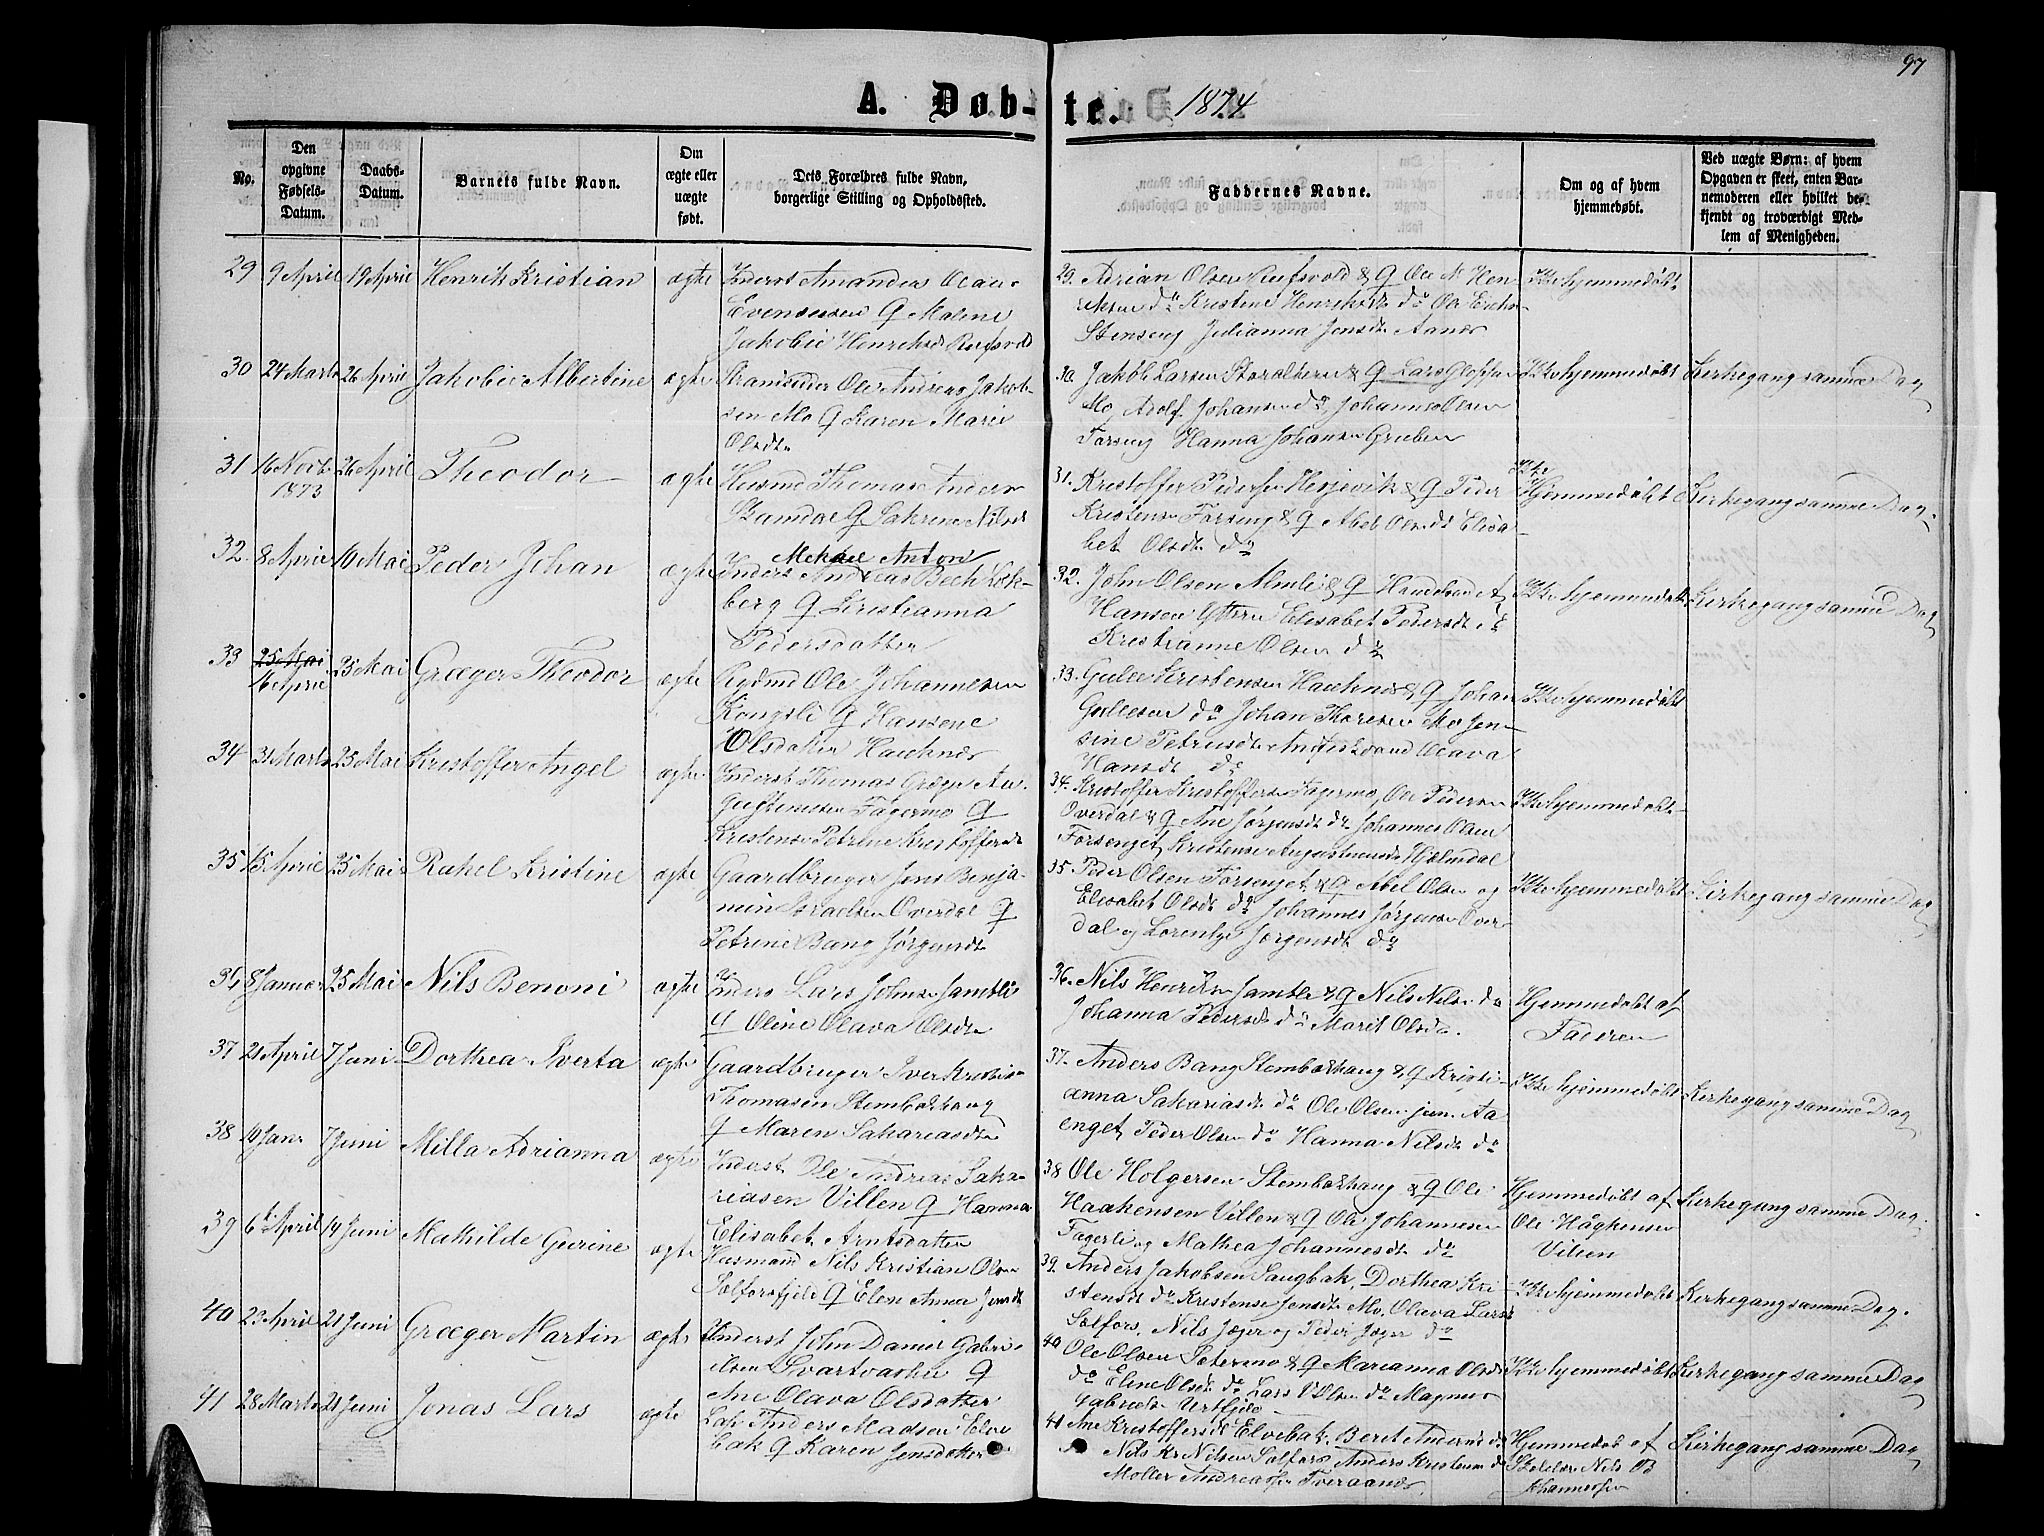 97
A. Døb-te. 1874
No.
Den opgivne Fødsels-Datum.
Daabs-Datum.
Barnets fulde Navn.
Om ægte eller uægte født.
Dets Forældres fulde Navn, borgerlige Stilling og Opholdssted.
Faddernes Navne.
Om og af hvem hjemmedøbt.
Ved uægte Børn: af hvem Opgaven er skeet, enten Barnemoderen eller hvilket bekjendt og troværdigt Medlem af Menigheden.
29 9 April 19 April Henrik Kristian ægte Inderst Amandus Olaus
Evensen & Malene
Jakobie Henriksdt
29. Adrian Olsen & Ole N. Hen-
riksen do Kristine Henriksdt do Ole
Stenseng Julianna Jensdt Aanes
Ikke hjemmedøbt
30 24 Marts 26 April Jakobie Albertine ægte Strandsidder Ole Andreas Jakob-
sen Mo & Karen Marie
Olsdtr
30. Jakob Larsen & Lars
Mo, Adolf Johansen do, Johannes Olsen
Forseng Hanna Johansen Gruben
Ikke hjemmedøbt Kirkegang samme Dag
31 16 Novb 1873 26 April Theodor ægte Husmd Thomas Anders
& Sakrine Nilsd
31. Kristoffer Pedersen & Peder
Kristensen Forseng & Abel Olsdt Elisa-
bet Olsdt do
Ikke
Hjemmedøbt Kirkegang samme Dag.
32. 8 April 10 Mai Peder Johan ægte Mekael Anton
Inderst Andreas Bech Løk-
berg & Kristianna
Pedersdatter
32. John Olsen Almli &
Hansen Ytteren Elisabet Pedersdt
Kristianne Olsen do
Ikke hjemmedøbt Kirkegang samme Dag
33 25 Mai
16 April 25 Mai Græger Theodor ægte Rydmd Ole Johannesen
Kongsli & Hansene
Olsdatter Hauknes
33. Gulle Kristensen Hauknes & Johan
Gullesen do Johan Thoresen Mo Jen-
sine Petersdt Olava
Hansdt do
Ikke hjemmedøbt
34 31 Marts 25 Mai Kristoffer Angel ægte Inderst Thomas Græger Au-
gustinussen Fagermo &
Kristense Petrine Kristoffersdt
34. Kristoffer Kristoffersen Fagermo, Ole Pedersen
Overdal & Ane Jørgensdt do Johannes Olsen
Forsenget, Kristense Augustinusdt Hjelmdal
Ikke hjemmedøbt
35 15 April 25 Mai Rakel Kristine ægte Gaardbruger Jens Benja-
min Israelsen Overdal &
Petrine Bang Jørgensdt
35 Peder Olsen Forsenget & Abel Olsen og
Elisabet Olsdt do Johannes Jørgensen Over-
dal og Lorentse Jørgensdt do
Ikke hjemmedøbt Kirkegang samme Dag
36 8 Januar 25 Mai Nils Benoni ægte Inders Lars Johnsen Jamtli
& Oline Olava Olsdtr
36. Nils Henriksen Jamtli & Nils Nilsen do
Johanna Pedersdt do Marit Olsdt.
Hjemmedøbt af
Faderen
37 21 April 7 Juni Dorthea Iverta ægte Gaardbruger Iver Kristian
Thomasen Stenbakhaug
& Maren Sakariasdtr
37. Anders Bang Stenbakhaug & Kristi-
anna Sakariasdt do Ole Olsen jun. Aa-
enget, Peder Olsen do Hanna Nilsdt do
Ikke hjemmedøbt Kirkegang samme Dag
38 10 Janr 7 Juni Milla Adrianna ægte Inderst Ole Andreas Saka-
riasen Villen & Hanna
Elisabet Arntsdatter
38 Ole Holgersen Stenbakhaug & Ole
Haakensen Villen & Ole Johannesen
Fagerli og Mathea Johannesdt do
Hjemmedøbt af
Ole Hågkensen
Villen
Kirkegang samme Dag.
39 6 April 14 Juni Mathilde Gurine ægte Husmand Nils Kristian Olsen
Solforsfjeld & Elen Anna Jensdt
39. Anders Jakobsen Langbak, Dorthea Kri-
stensdt do Kristense Jensdt Mo, Olava Larsdt
Solfors, Nils Jæger og Peder Jæger do
Ikke hjemmedøbt Kirkegang samme Dag.
40 23 April 21 Juni Græger Martin ægte Inderst John Daniel Gabri-
elsen Svartvasher &
Ane Olava Olsdatter
40 Ole Olsen Petermo & Marianna Olsdt
do Eline Olsdt do Lars Olsen do Magnus
Gabrielsen Urtfjeld
Ikke hjemmedøbt Kirkegang samme Dag
41 28 Marts 21 Juni Jonas Lars ægte Lap Anders Madsen Elve-
bak & Karen Jensdatter
41 Ane Kristoffersdt Elvebak, Beret Andersdt do
Nils Kr Nilsen Solfors Anders Kristensen do
Moller Andreassen Tveraanes.
Hjemmedøb af
Skolelær. Nils B
Johannessen
Kirkegang samme Dag